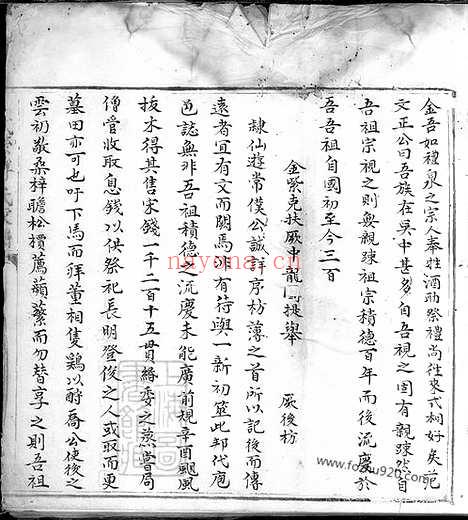 金吾如禮泉之宗人奉牲酒助祭禮尚往來式相好矣范
文正公曰吾族在吳中甚多自吾視之固有親疎然自
吾祖宗視之則無親疎祖宗積德百年而後流慶於
吾吾祖自國初至今三百
金紫克扶厥忠龍 提舉 厥後枋
隸仙遊常僕公誠 序枋薄之首所以記後而傳
遠者宜有文而闕焉 有待與一新初筮此邦代庖
邑誌無非吾祖積德之流慶未能廣前規辛酉颶風
拔木得其售宋錢一千二百十五貫緡委之薦當局
僧管收取息錢以供祭祀長明登俊之人或取而更
墓田亦可也吁下馬而拜董相隻鷄以酹喬公使後之
雲礽敬桑梓瞻松檟薦蘋蘩而勿替享之則吾祖
nayona.cn
www.fozhu920.com